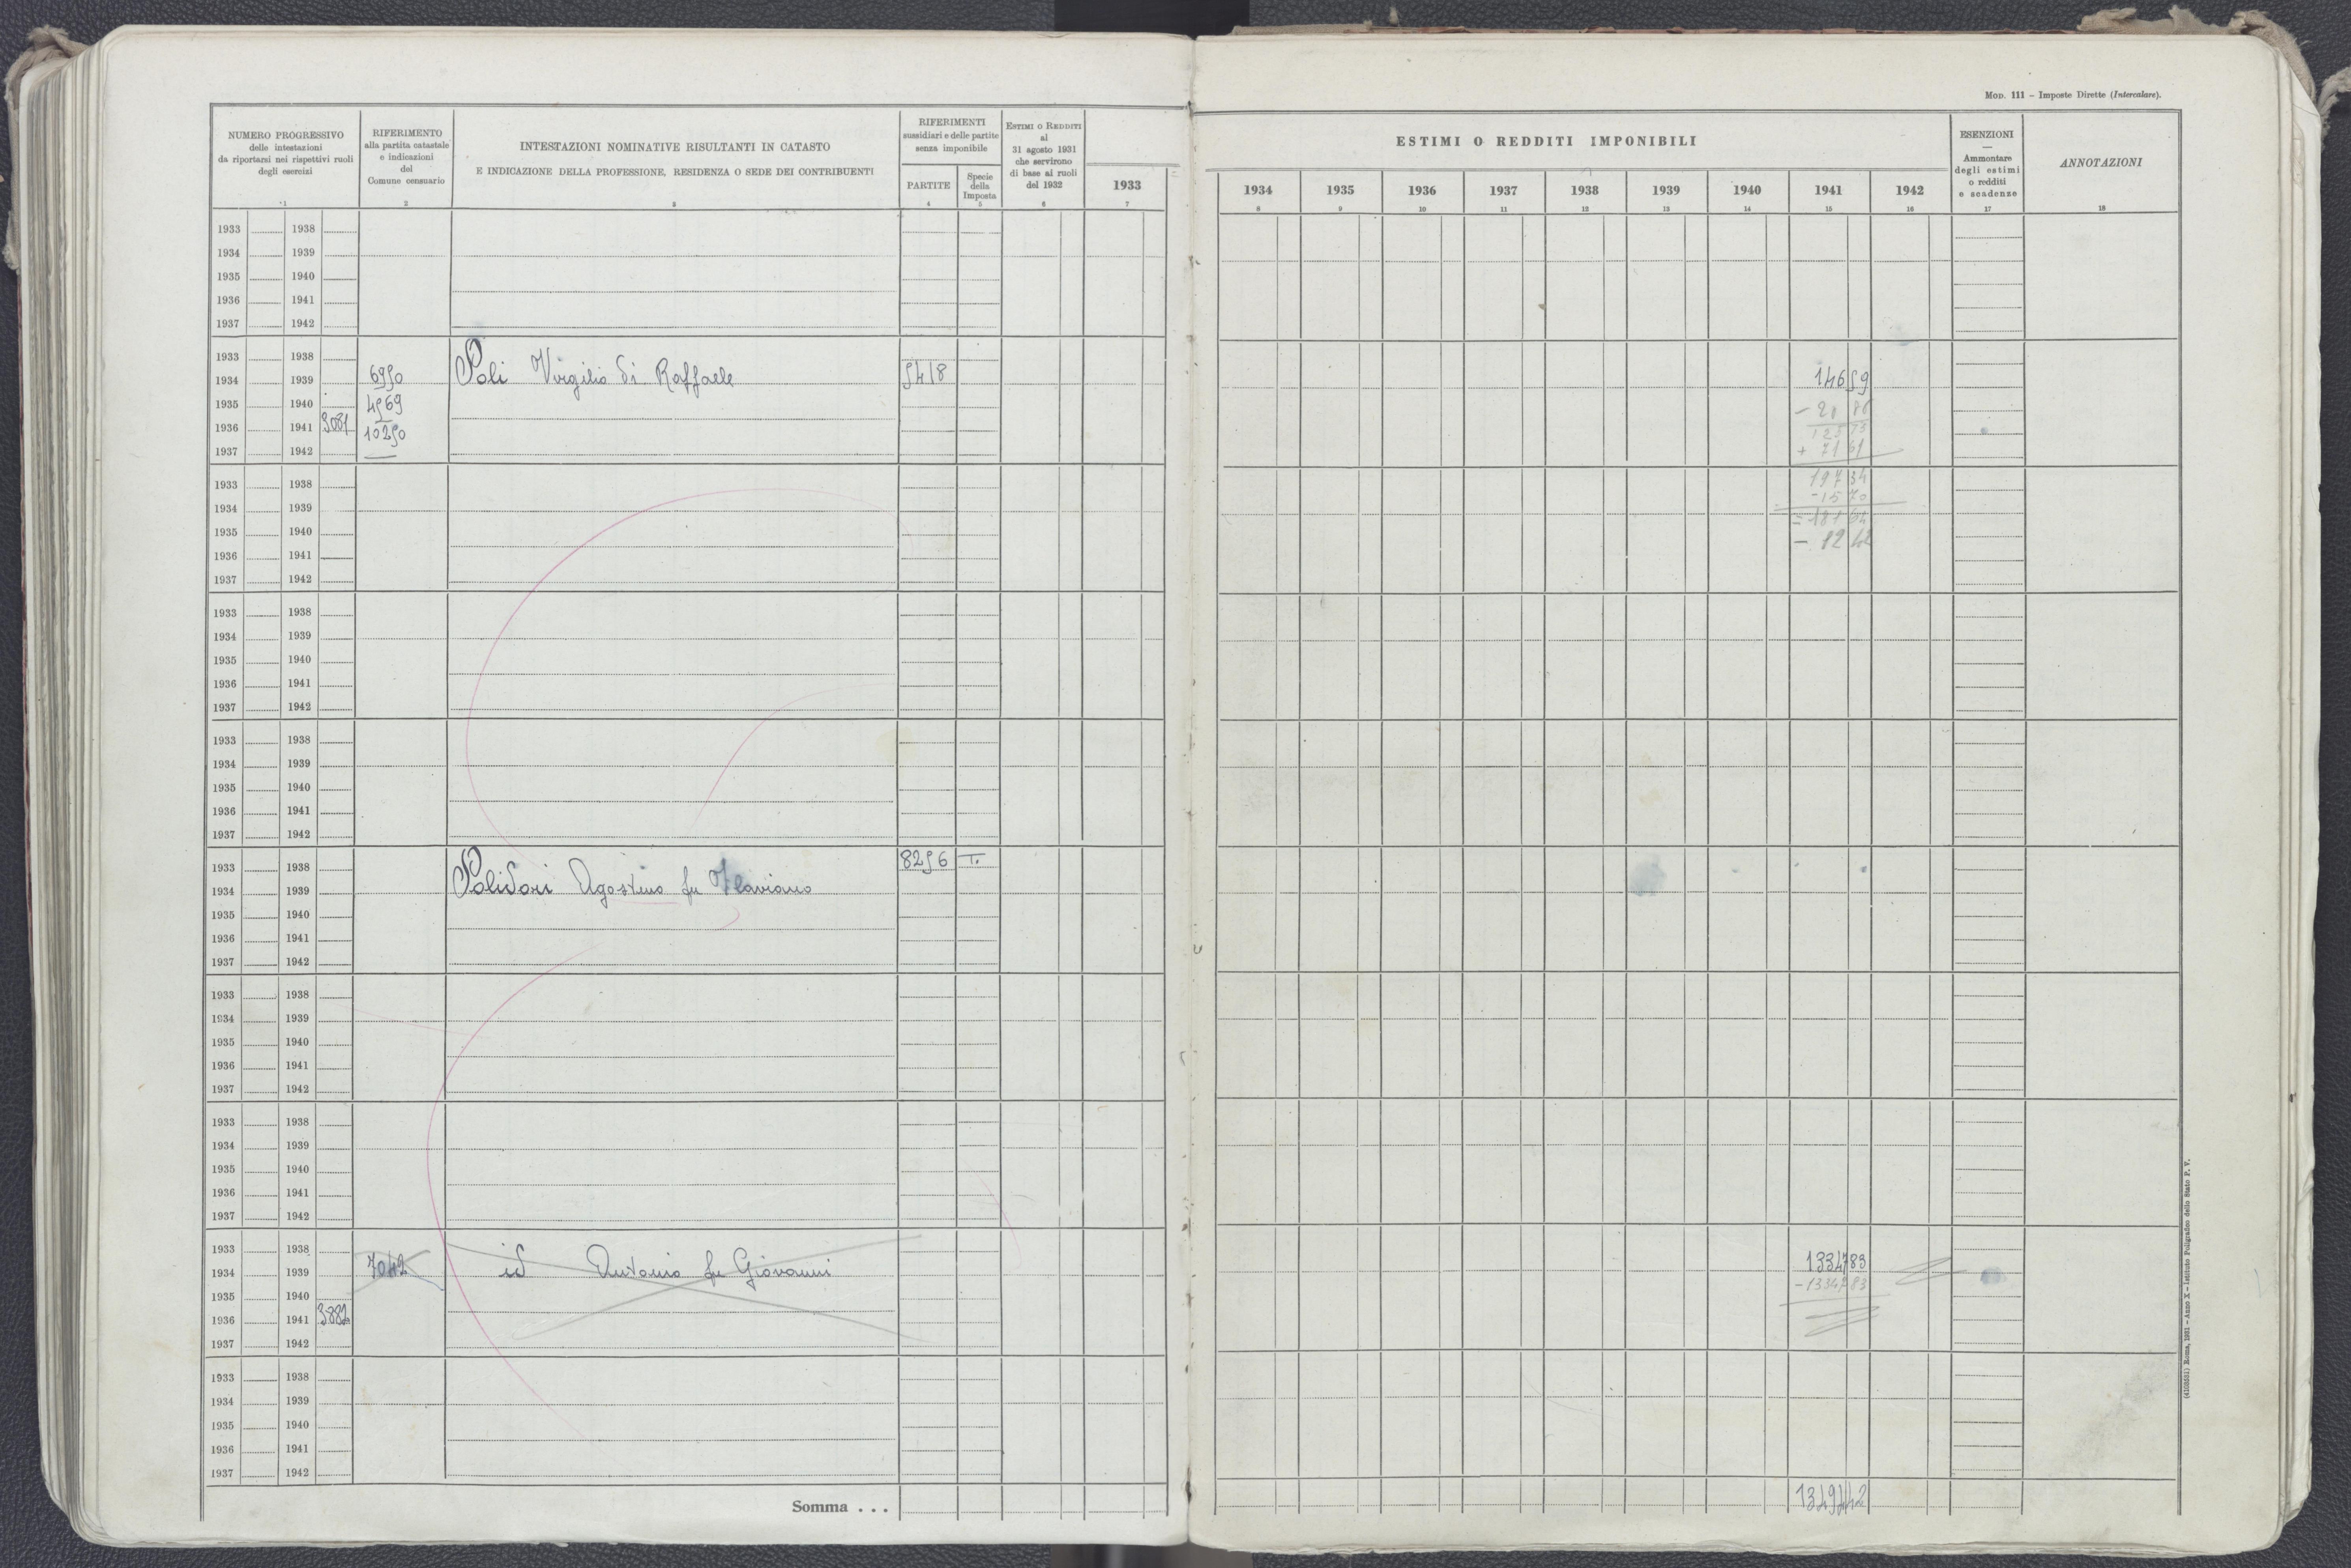 Mod. 111 – Imposte Dirette (Intercalare).
NUMERO PROGRESSIVO
delle intestazioni
da riportarsi nei rispettivi ruoli
degli esercizi
1
RIFERIMENTO
alla partita catastale
e indicazioni
del
Comune censuario
2
INTESTAZIONI NOMINATIVE RISULTANTI IN CATASTO
E INDICAZIONE DELLA PROFESSIONE, RESIDENZA O SEDE DEI CONTRIBUENTI
3
RIFERIMENTI
sussidiari e delle partite
senza imponibile
PARTITE
4
Specie
della
Imposta
5
Estimi o Redditi
al
31 agosto 1931
che servirono
di base ai ruoli
del 1932
6
1933
7
ESTIMI O REDDITI IMPONIBILI
1934 1935 1936 1937 1938 1939 1940 1941 1942
8 9 10 11 12 13 14 15 16
ESENZIONI
—
Ammontare
degli estimi
o redditi
e scadenze
17
ANNOTAZIONI
18
1933 1938
1934 1939
1935 1940
1936 1941
1937 1942
1933 1938
1934 1939 6950 Poli Virgilio di Raffaele 5418 146 59
1935 1940 4569 – 20 86
1936 1941 3881 10250 125 73
1937 1942 + 71 61
1933 1938 197 34
1934 1939 – 15 70
1935 1940 = 181 64
1936 1941 – 12 42
1937 1942
1933 1938
1934 1939
1935 1940
1936 1941
1937 1942
1933 1938
1934 1939
1935 1940
1936 1941
1937 1942
1933 1938 8256 T.
1934 1939 Polidori Agostino fu Flaviano
1935 1940
1936 1941
1937 1942
1933 1938
1934 1939
1935 1940
1936 1941
1937 1942
1933 1938
1934 1939
1935 1940
1936 1941
1937 1942
1933 1938
1934 1939 7042 id Antonio fu Giovanni 1334783
1935 1940 – 1334783
1936 1941 3882
1937 1942
1933 1938
1934 1939
1935 1940
1936 1941
1937 1942
Somma . . . 1349442
(4103531) Roma, 1931 – Anno X – Istituto Poligrafico dello Stato P. V.